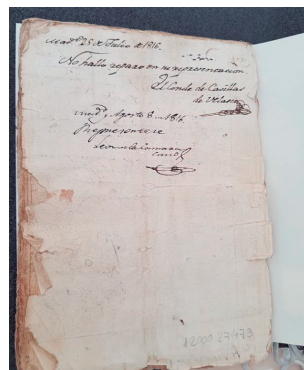 Mad.d 25 de Julio de 1816.
No hallo reparo en su representacion
El Conde de Casillas
de Velasco
Mad.d y Agosto 8 de 1816
Represéntese
1200027473